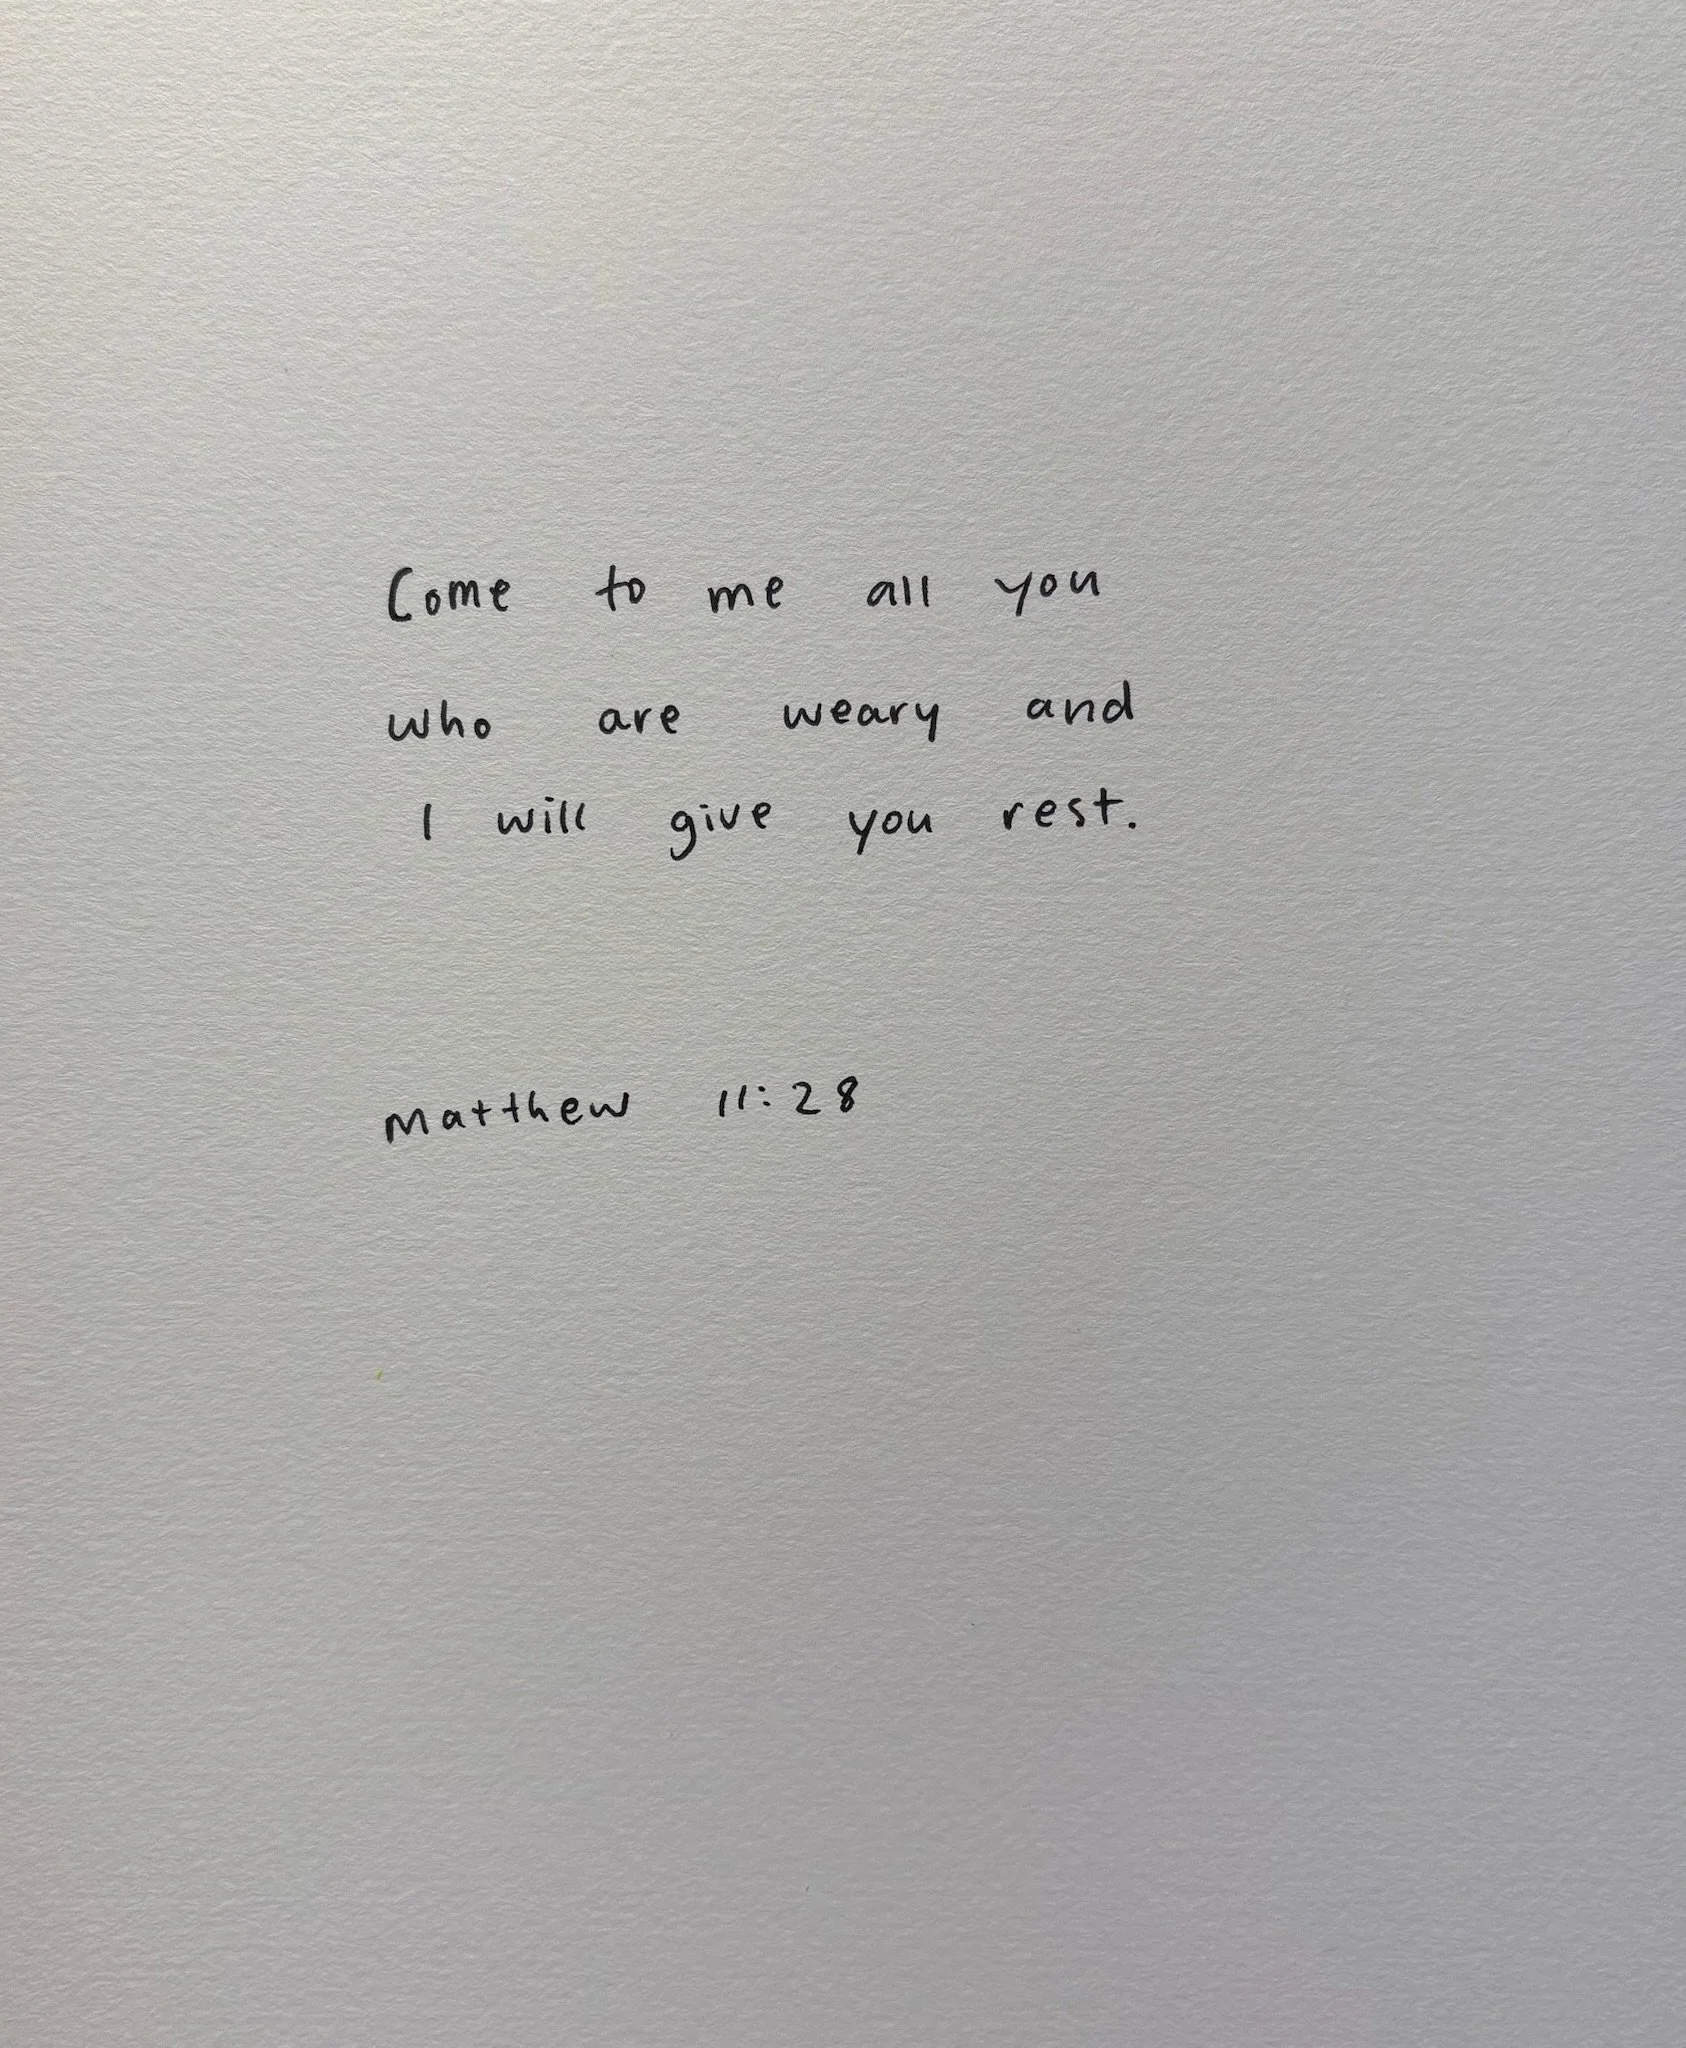 Come to me all you
who are weary and
I will give you rest.
Matthew 11:28